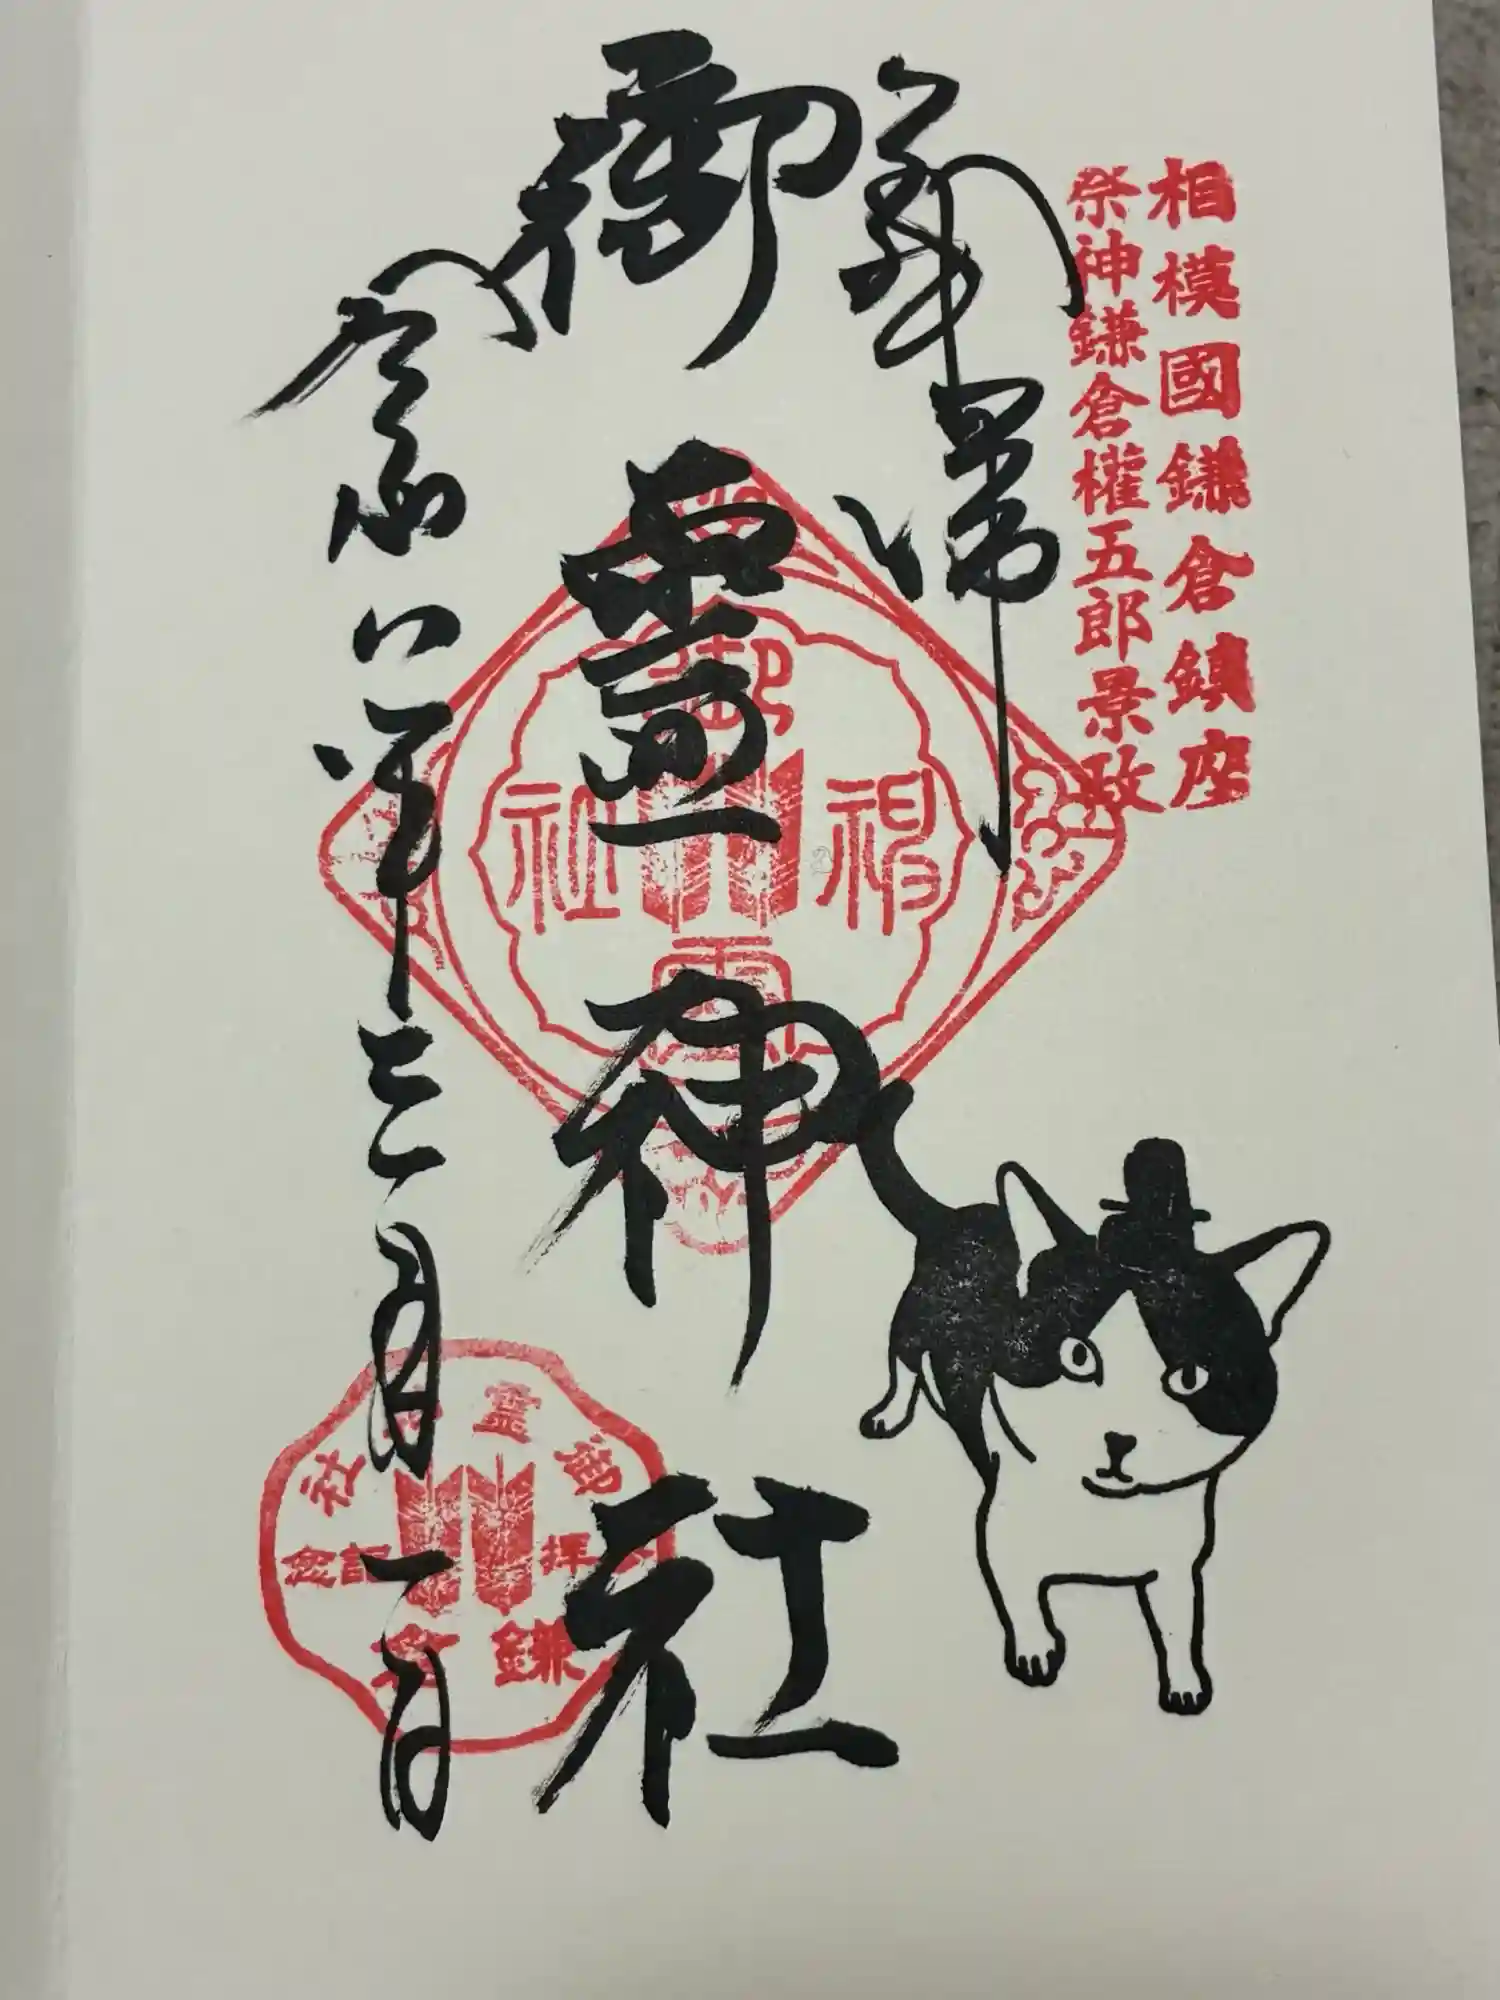 相模國鎌倉鎮座
祭神鎌倉權五郎景政
奉拝
御靈神社
令和八年三月一日
御靈神社
御靈神社
参拝記念
鎌倉